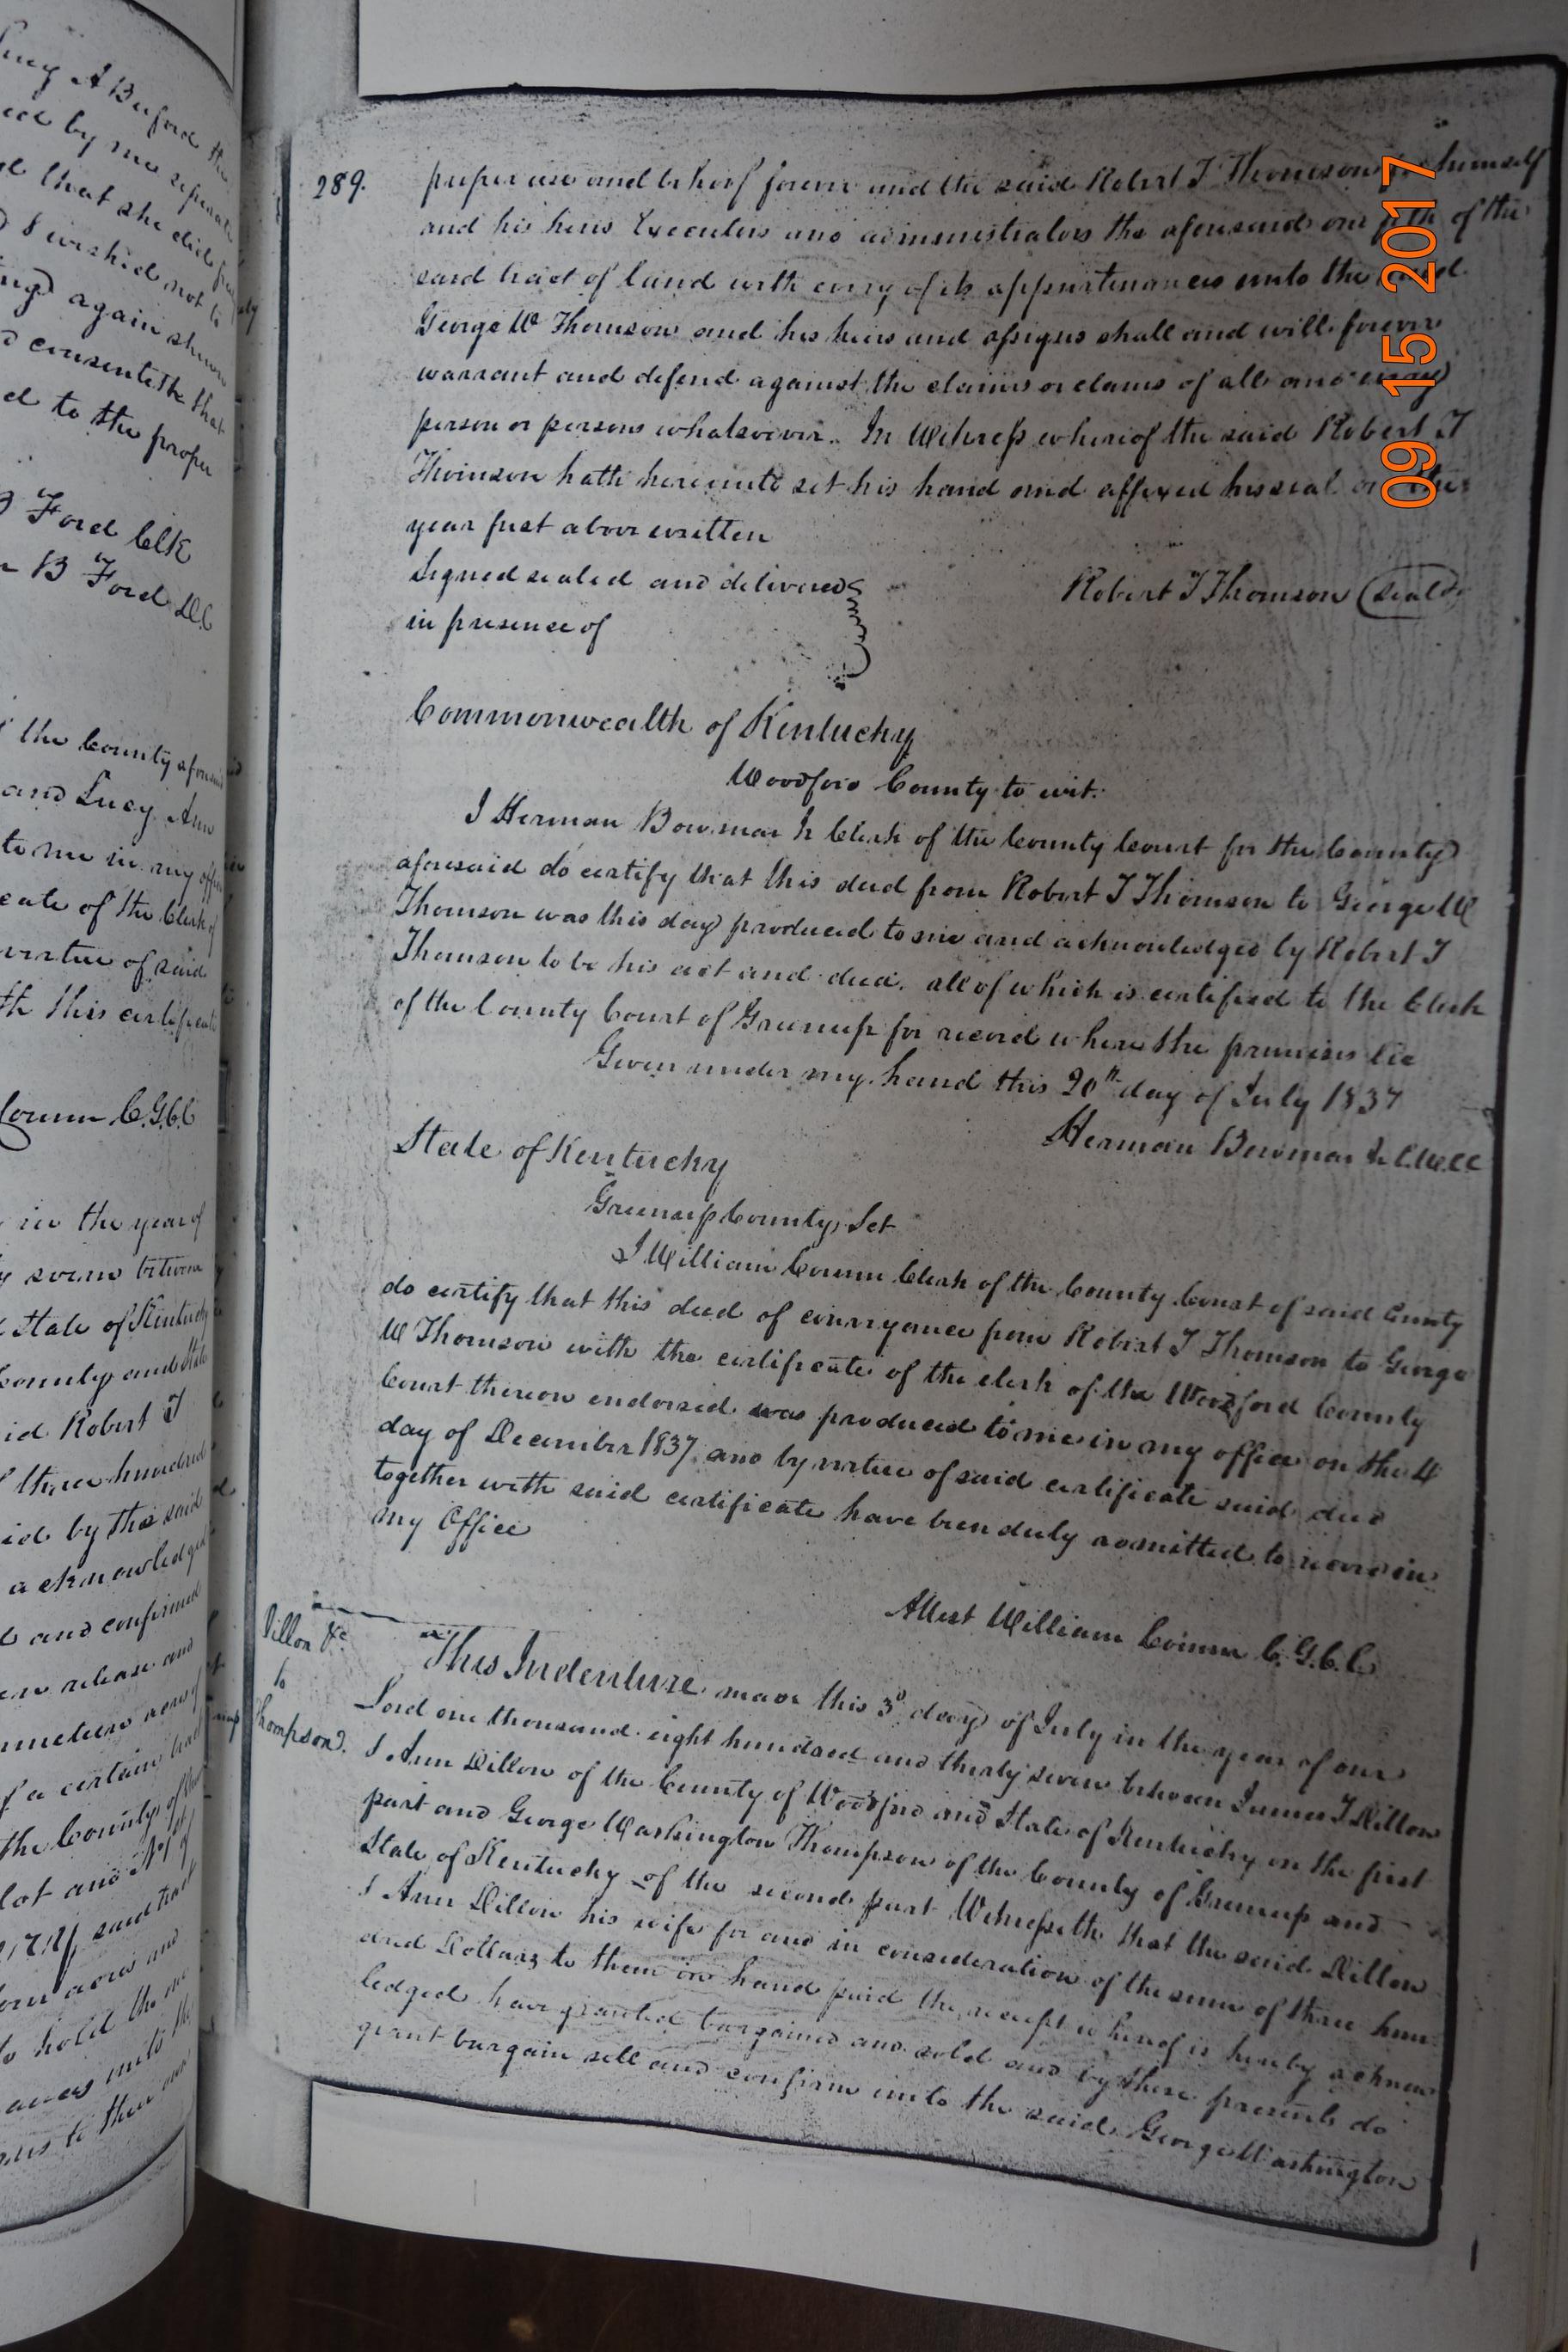 ucy A Buford the
ed by me seperate
that she did freely
I wished not to
ing again shewn
consenteth that
ed to the proper
Ford Clk
B Ford D.C
the County aforesaid
and Lucy Ann
to me in my office
cate of the Clerk of
virtue of said
th this certificate
Corum C.G.C.C
in the year of
seven between
State of Kentucky
County and State
id Robert T
three hundred
id by the said
acknowledged
and confirmed
release and
nineteen acres of
f a certain tract
the County of
lot and No of
said tract
acres and
to hold the
unto the
to their
289.
proper use and behoof forever and the said Robert T Thomson for himself
and his heirs Executors and administrators the aforesaid one fifth of the
said tract of land with every of its appurtenances unto the said
George W Thomson and his heirs and assigns shall and will forever
warrant and defend against the claims or claims of all and every
person or persons whatsoever. In Witness whereof the said Robert T
Thomson hath hereunto set his hand and affixed his seal on the
year first above written
Signed sealed and delivered
in presence of
Robert T Thomson (Seal)
Commonwealth of Kentucky
Woodford County to wit:
I Herman Bowmar Jr Clerk of the County Court for the County
aforesaid do certify that this deed from Robert T Thomson to George W
Thomson was this day produced to me and acknowledged by Robert T
Thomson to be his act and deed. all of which is certified to the Clerk
of the County Court of Greenup for record where the premises lie
Given under my hand this 20th day of July 1837
Herman Bowmar Jr C.W.C.C
State of Kentucky
Greenup County Sct
I William Corum Clerk of the County Court of said County
do certify that this deed of conveyance from Robert T Thomson to George
W Thomson with the certificate of the clerk of the Woodford County
Court thereon endorsed was produced to me in my office on the 4
day of December 1837 and by virtue of said certificate said deed
together with said certificate have been duly admitted to record in
my Office
Attest William Corum C.G.C.C.
Dillon &c
to
Thompson
This Indenture made this 3d day of July in the year of our
Lord one thousand eight hundred and thirty seven between James T Dillon
& Ann Dillon of the County of Woodford and State of Kentucky on the first
part and George Washington Thompson of the County of Greenup and
State of Kentucky of the second part Witnesseth that the said Dillon
& Ann Dillon his wife for and in consideration of the sum of three hun-
dred Dollars to them in hand paid the receipt whereof is hereby acknow
ledged have granted bargained and sold and by these presents do
grant bargain sell and confirm unto the said George Washington
09 15 2017